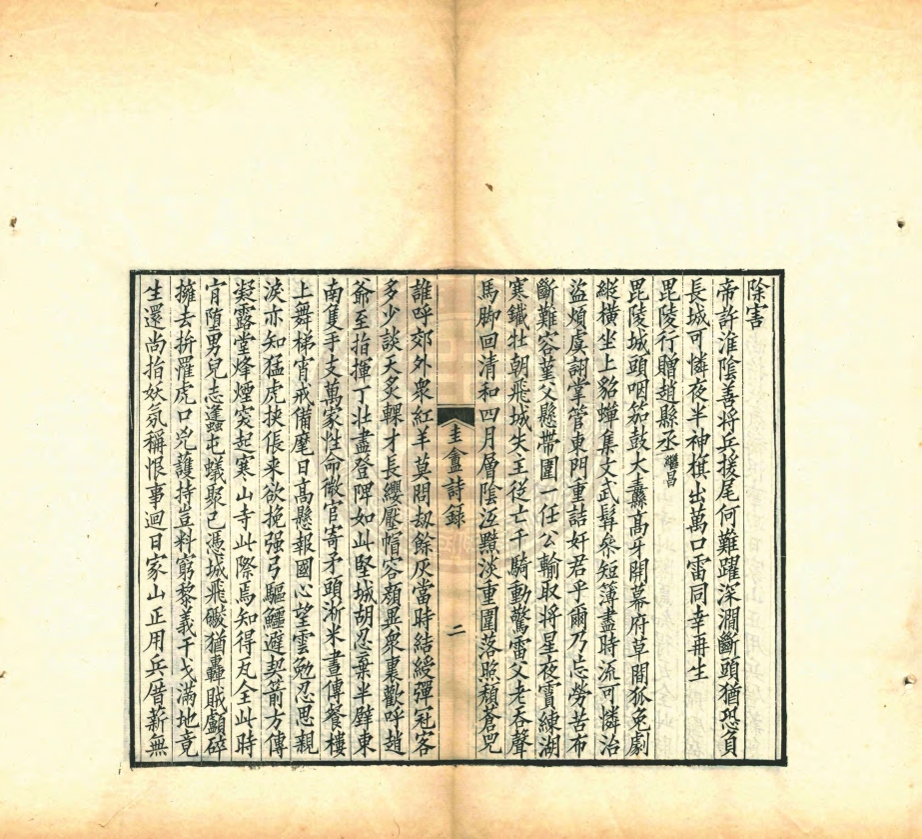 除害
帝許淮陰善將兵援尾何難躍深澗斷頭猶恐負
長城可憐夜半神旗出萬口雷同幸再生
毘陵行贈趙縣丞繼昌
毘陵城頭咽笳鼓大纛髙牙開幕府草間狐兔劇
縱橫坐上貂蟬集文武髯叅短簿盡時流可憐治
盜煩虞詡掌管東門重詰奸君乎爾乃忘勞苦布
斷難容堇父懸帶圍一任公輸取将星夜霣練湖
寒鐵牡朝飛城失王従亡千騎動驚雷父老呑聲
馬脚回清和四月層陰沍黯淡重圍落照頹蒼咒
誰呼郊外衆紅羊莫問刼餘灰當時結綬彈冠客
多少談天炙輠才長纓壓帽容顔異衆裏歡呼趙
爺至指揮丁壯盡登陴如此堅城胡忍棄半壁東
南隻手支萬家性命微官寄矛頭淅米晝傳餐樓
上舞梯宵戒備麾日髙懸報國心望雲勉忍思親
淚亦知猛虎挟倀来欲挽强弓驅鱷避契箭方傳
凝露堂烽煙突起寒山寺此際焉知得瓦全此時
肓堕男兒志蠭屯蟻聚已憑城飛礮猶轟賊顱碎
擁去拚罹虎口兇護持豈料窮黎義干戈滿地竟
生還尚指妖氛稱恨事迴日家山正用兵借薪無
圭盦詩録
二